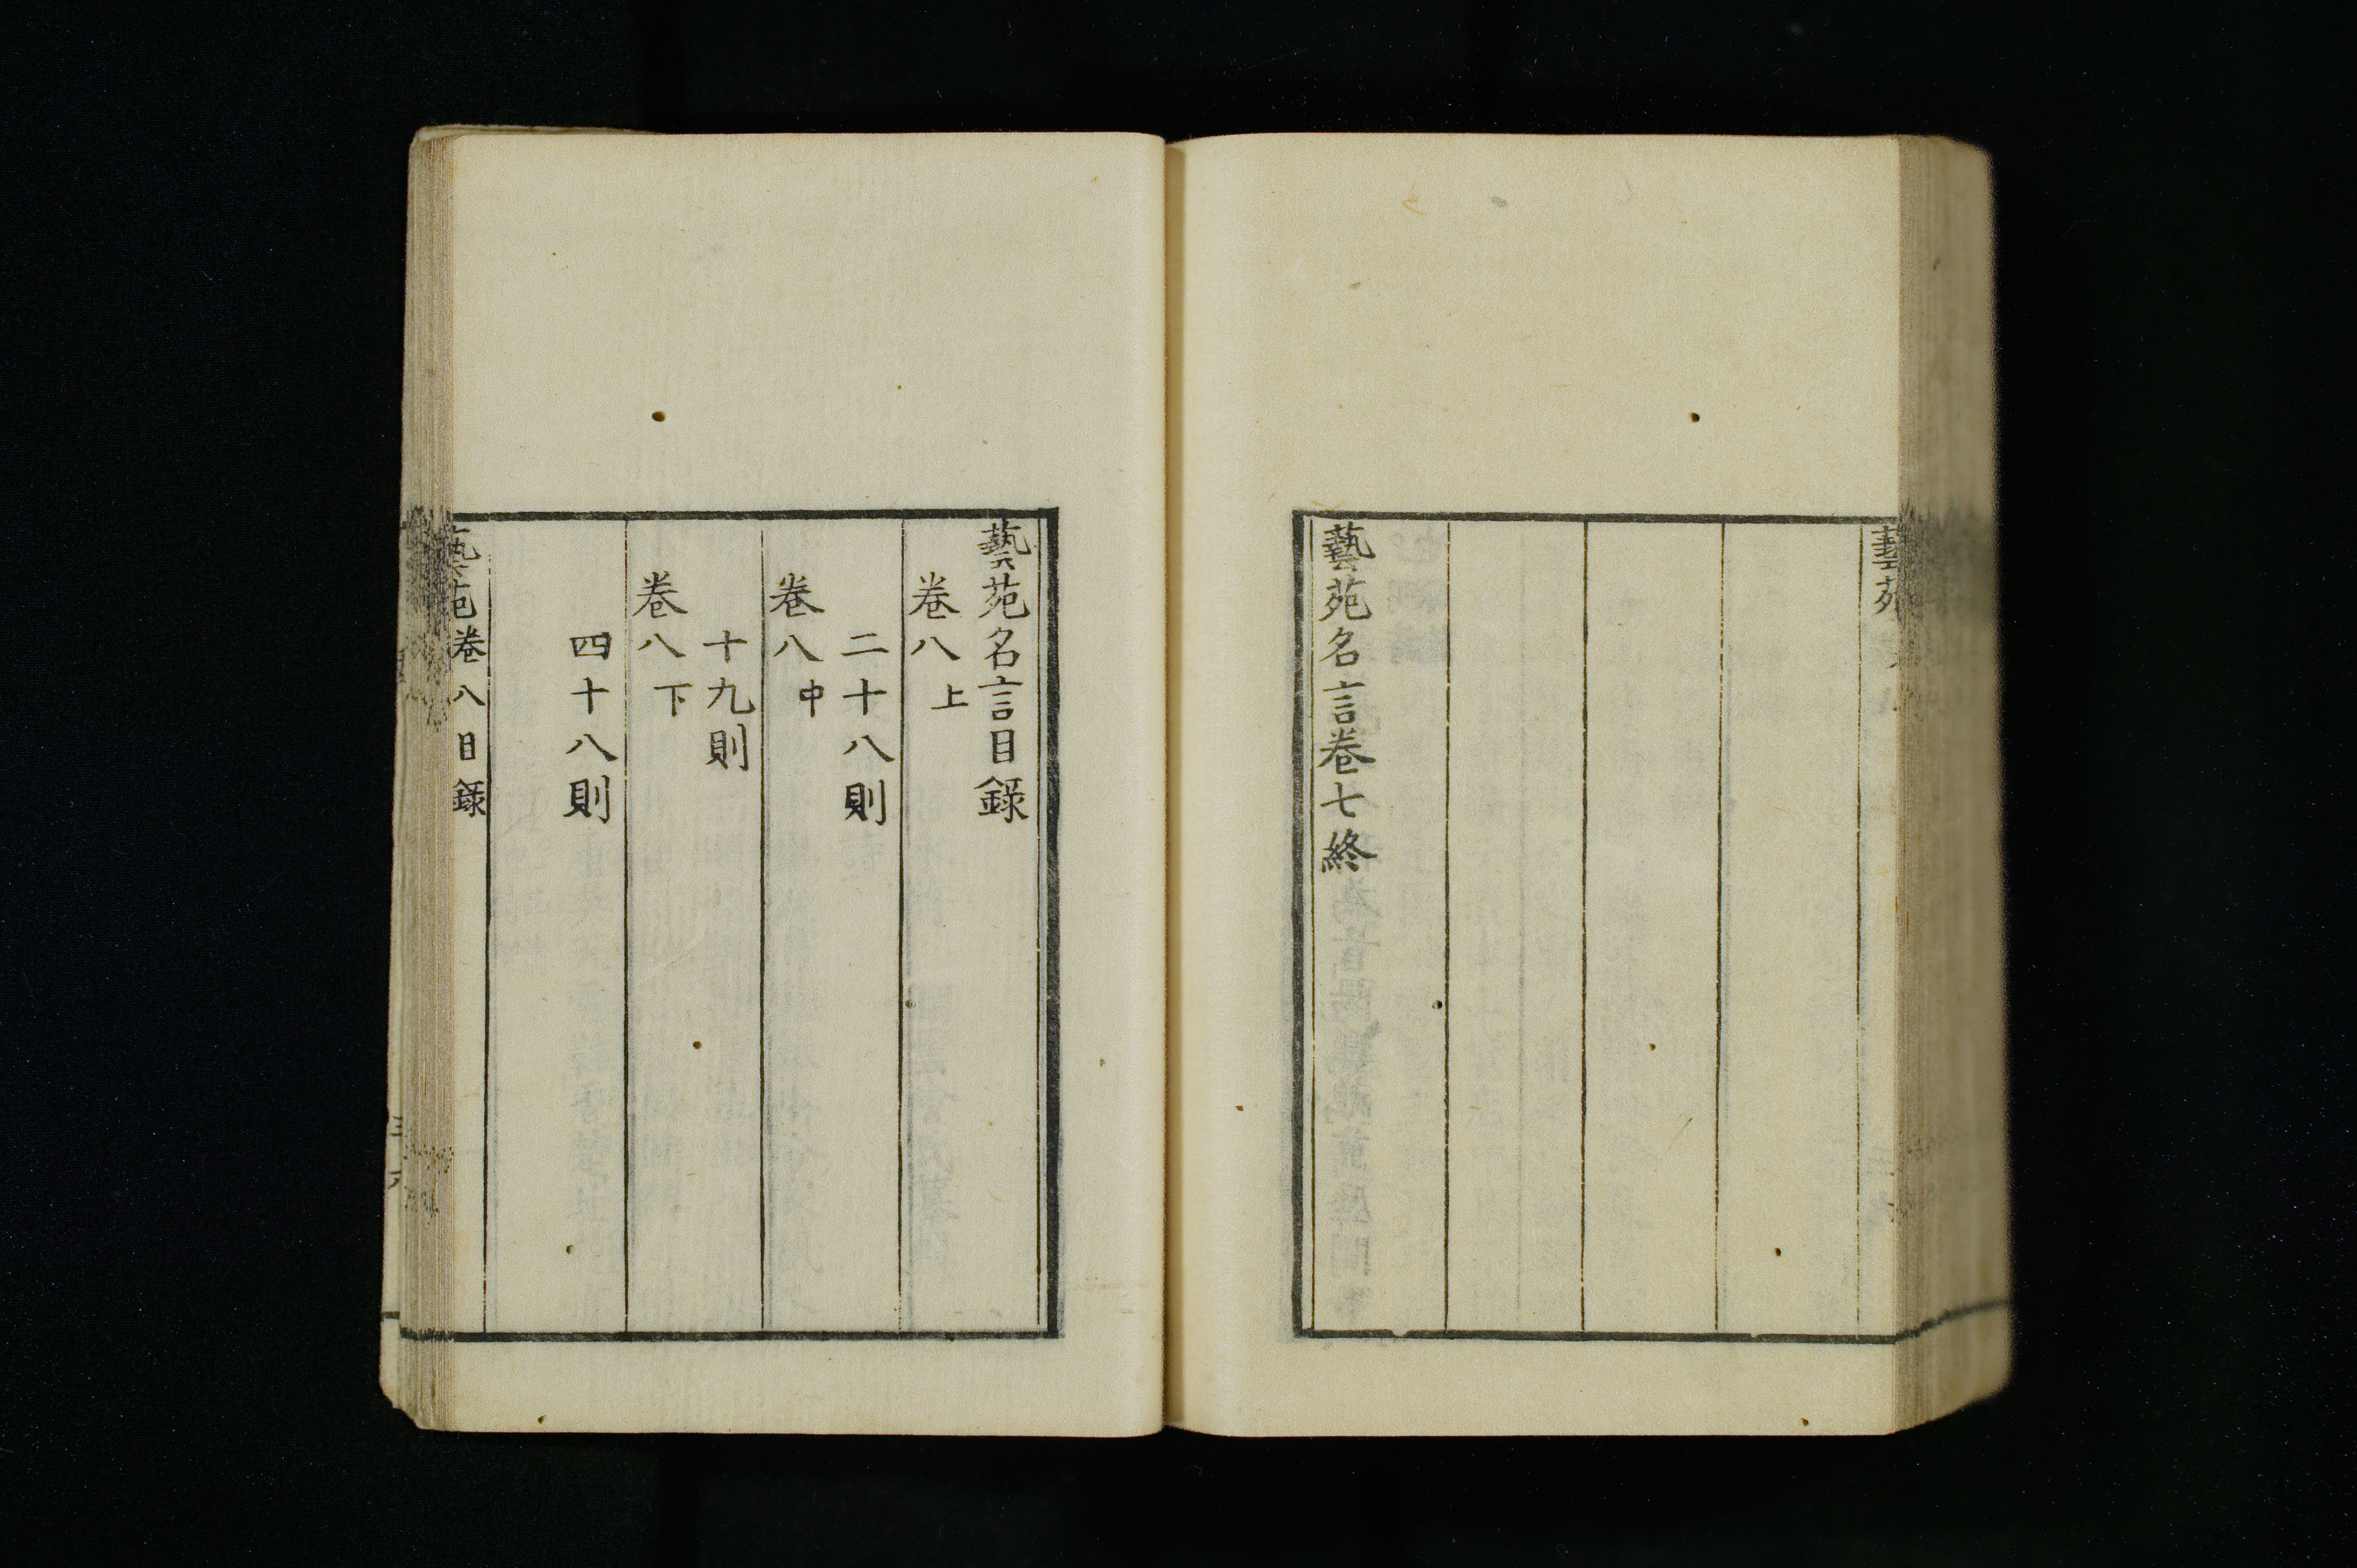 藝苑
藝苑名言卷七終
藝苑名言目錄
卷八上
二十八則
卷八中
十九則
卷八下
四十八則
藝苑卷八目錄